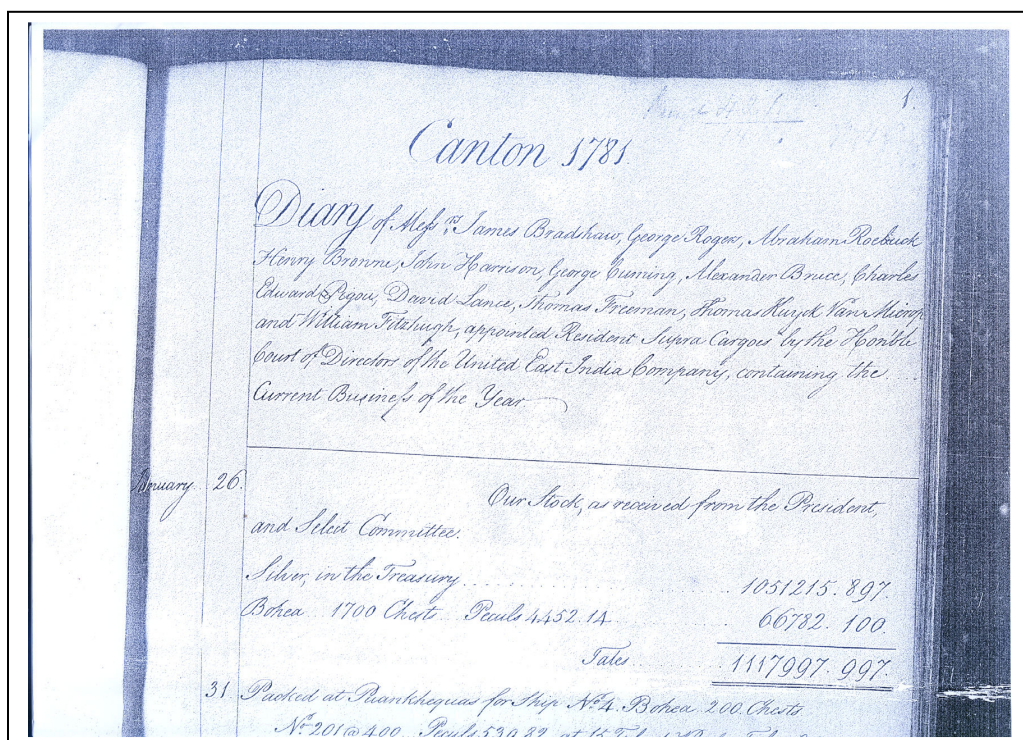 1.
Canton 1781.
Diary of Messrs. James Bradshaw, George Rogers, Abraham Roebuck
Henry Browne, John Harrison, George Cuming, Alexander Bruce, Charles
Edward Pigou, David Lance, Thomas Freeman, Thomas Kuyck Van Mierop
and William Fitzhugh, appointed Resident Supra Cargoes by the Honble
Court of Directors of the United East India Company, containing the ....
Current Business of the Year.
January 26. Our Stock, as received from the President,
and Select Committee.
Silver, in the Treasury 1051215. 897.
Bohea 1700 Chests Peculs 4452.14 66782. 100.
Tales 1117997. 997.
31 Packed at Puankhequas for Ship No. 4. Bohea 200 Chests
No. 201 @ 400 Peculs 530.82 at 15